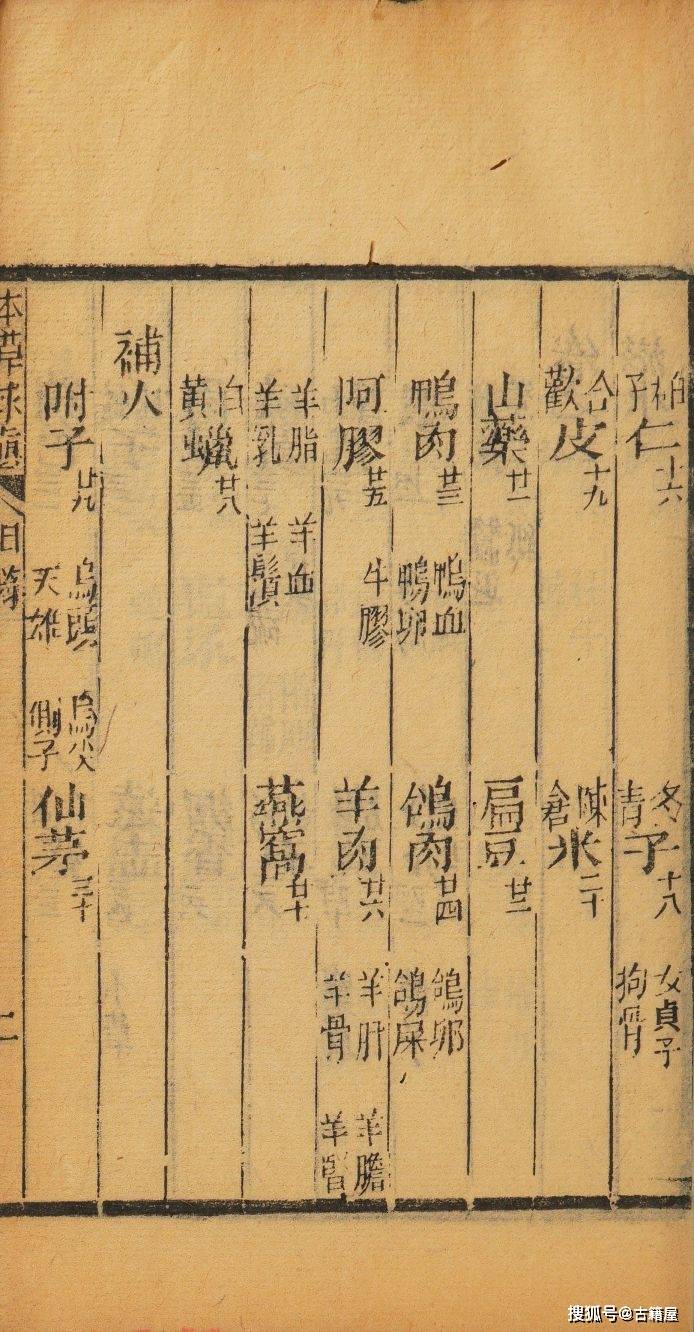 柏子仁十六 冬青子十八 女貞子 狗骨
合歡皮十九 陳倉米二十
山藥廿一 扁豆廿二
鴨肉廿三 鴨血 鴨卵 鴿肉廿四 鴿卵 鴿屎
阿膠廿五 牛膠 羊肉廿六 羊肝 羊骨 羊膽 羊
羊脂 羊乳 羊血 羊鬚 燕窩廿七
白黃蠟廿八
補火
附子廿九 烏頭 天雄 烏尖 側子 仙茅三十
本草求真 目錄 二
搜狐号@古籍屋